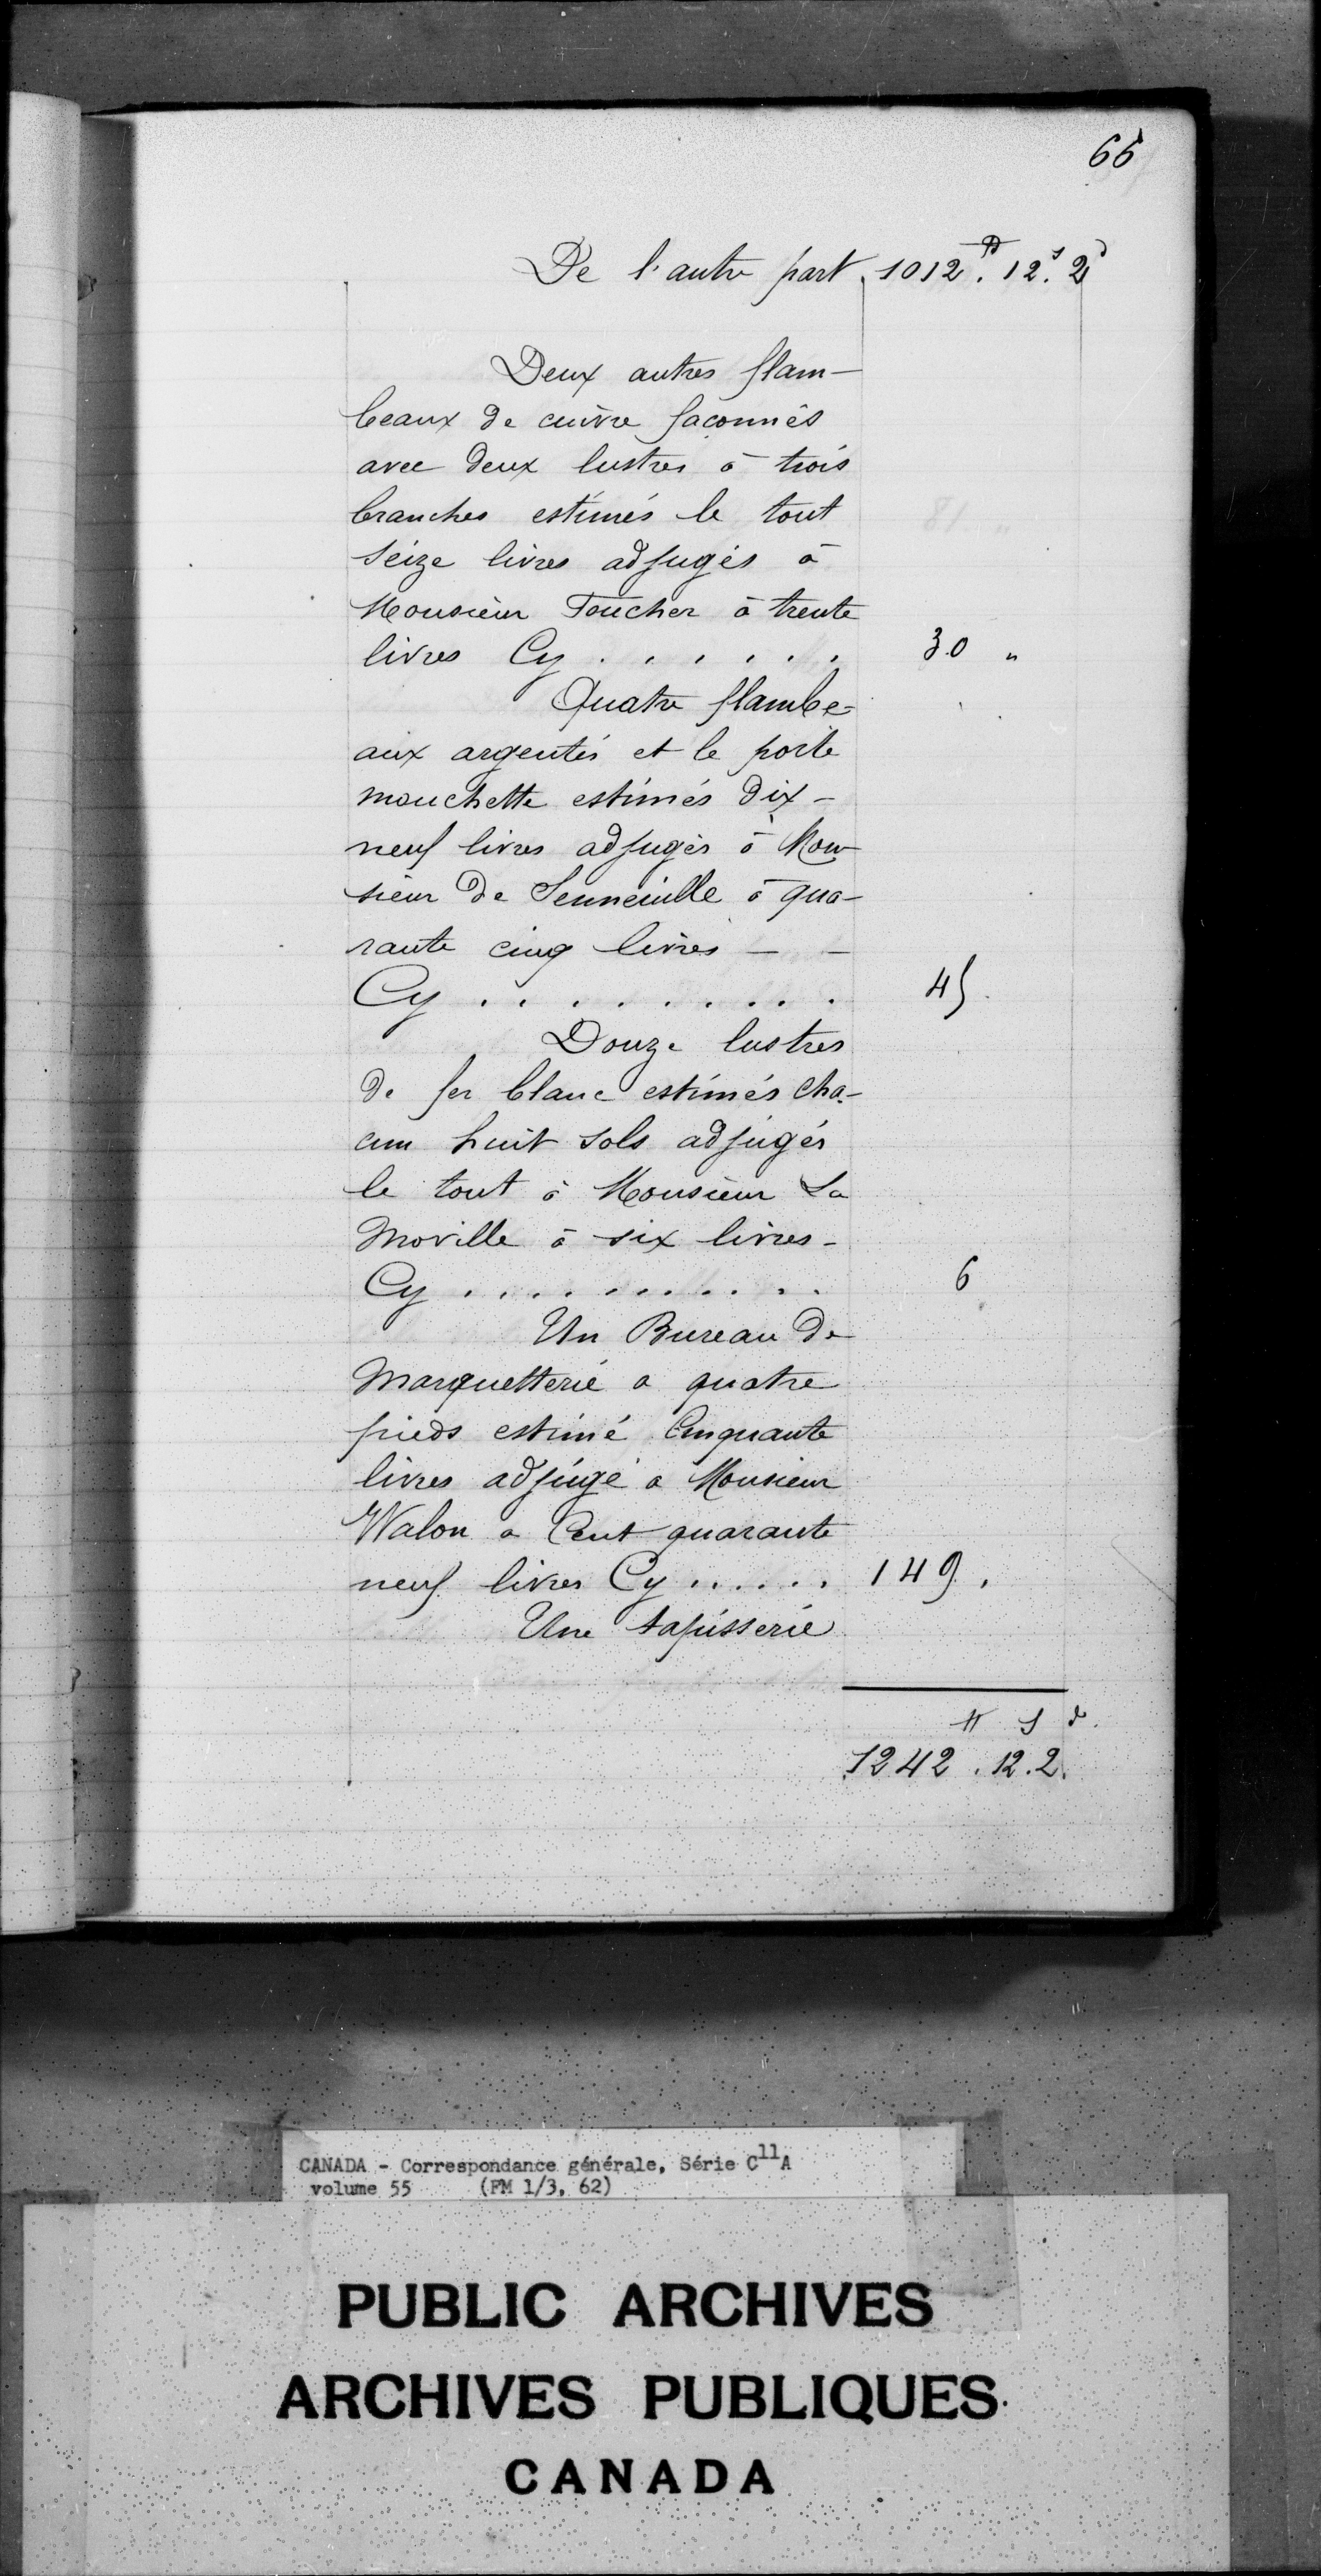 66
De l'autre part. 1012.₶ 12.s 2d
Deux autres flam-
beaux de cuivre façonnés
avec deux lustres à trois
branches estimés le tout
seize livres adjugés à
Monsieur Foucher à trente
livres Cy . . . . . . 30 "
Quatre flambe=
aux argentés et le porte
mouchette estimés dix-
neuf livres adjugés à Mon-
sieur de Senneville à qua-
rante cinq livres - -
Cy . . . . . . . . 45.
Douze lustres
de fer blanc estimés cha-
cun huit sols adjugés
le tout à Monsieur La
Morille à six livres -
Cy . . . . . . . . . . 6
Un Bureau de
Marquetterie a quatre
pieds estimé Cinquante
livres adjugé a Monsieur
Walon a Cent quarante
neuf livres Cy . . . . . . 149.
Une tapisserie
₶ s d.
1242 . 12.2.
CANADA - Correspondance générale, Série C11A
volume 55 (FM 1/3, 62)
PUBLIC ARCHIVES
ARCHIVES PUBLIQUES
CANADA